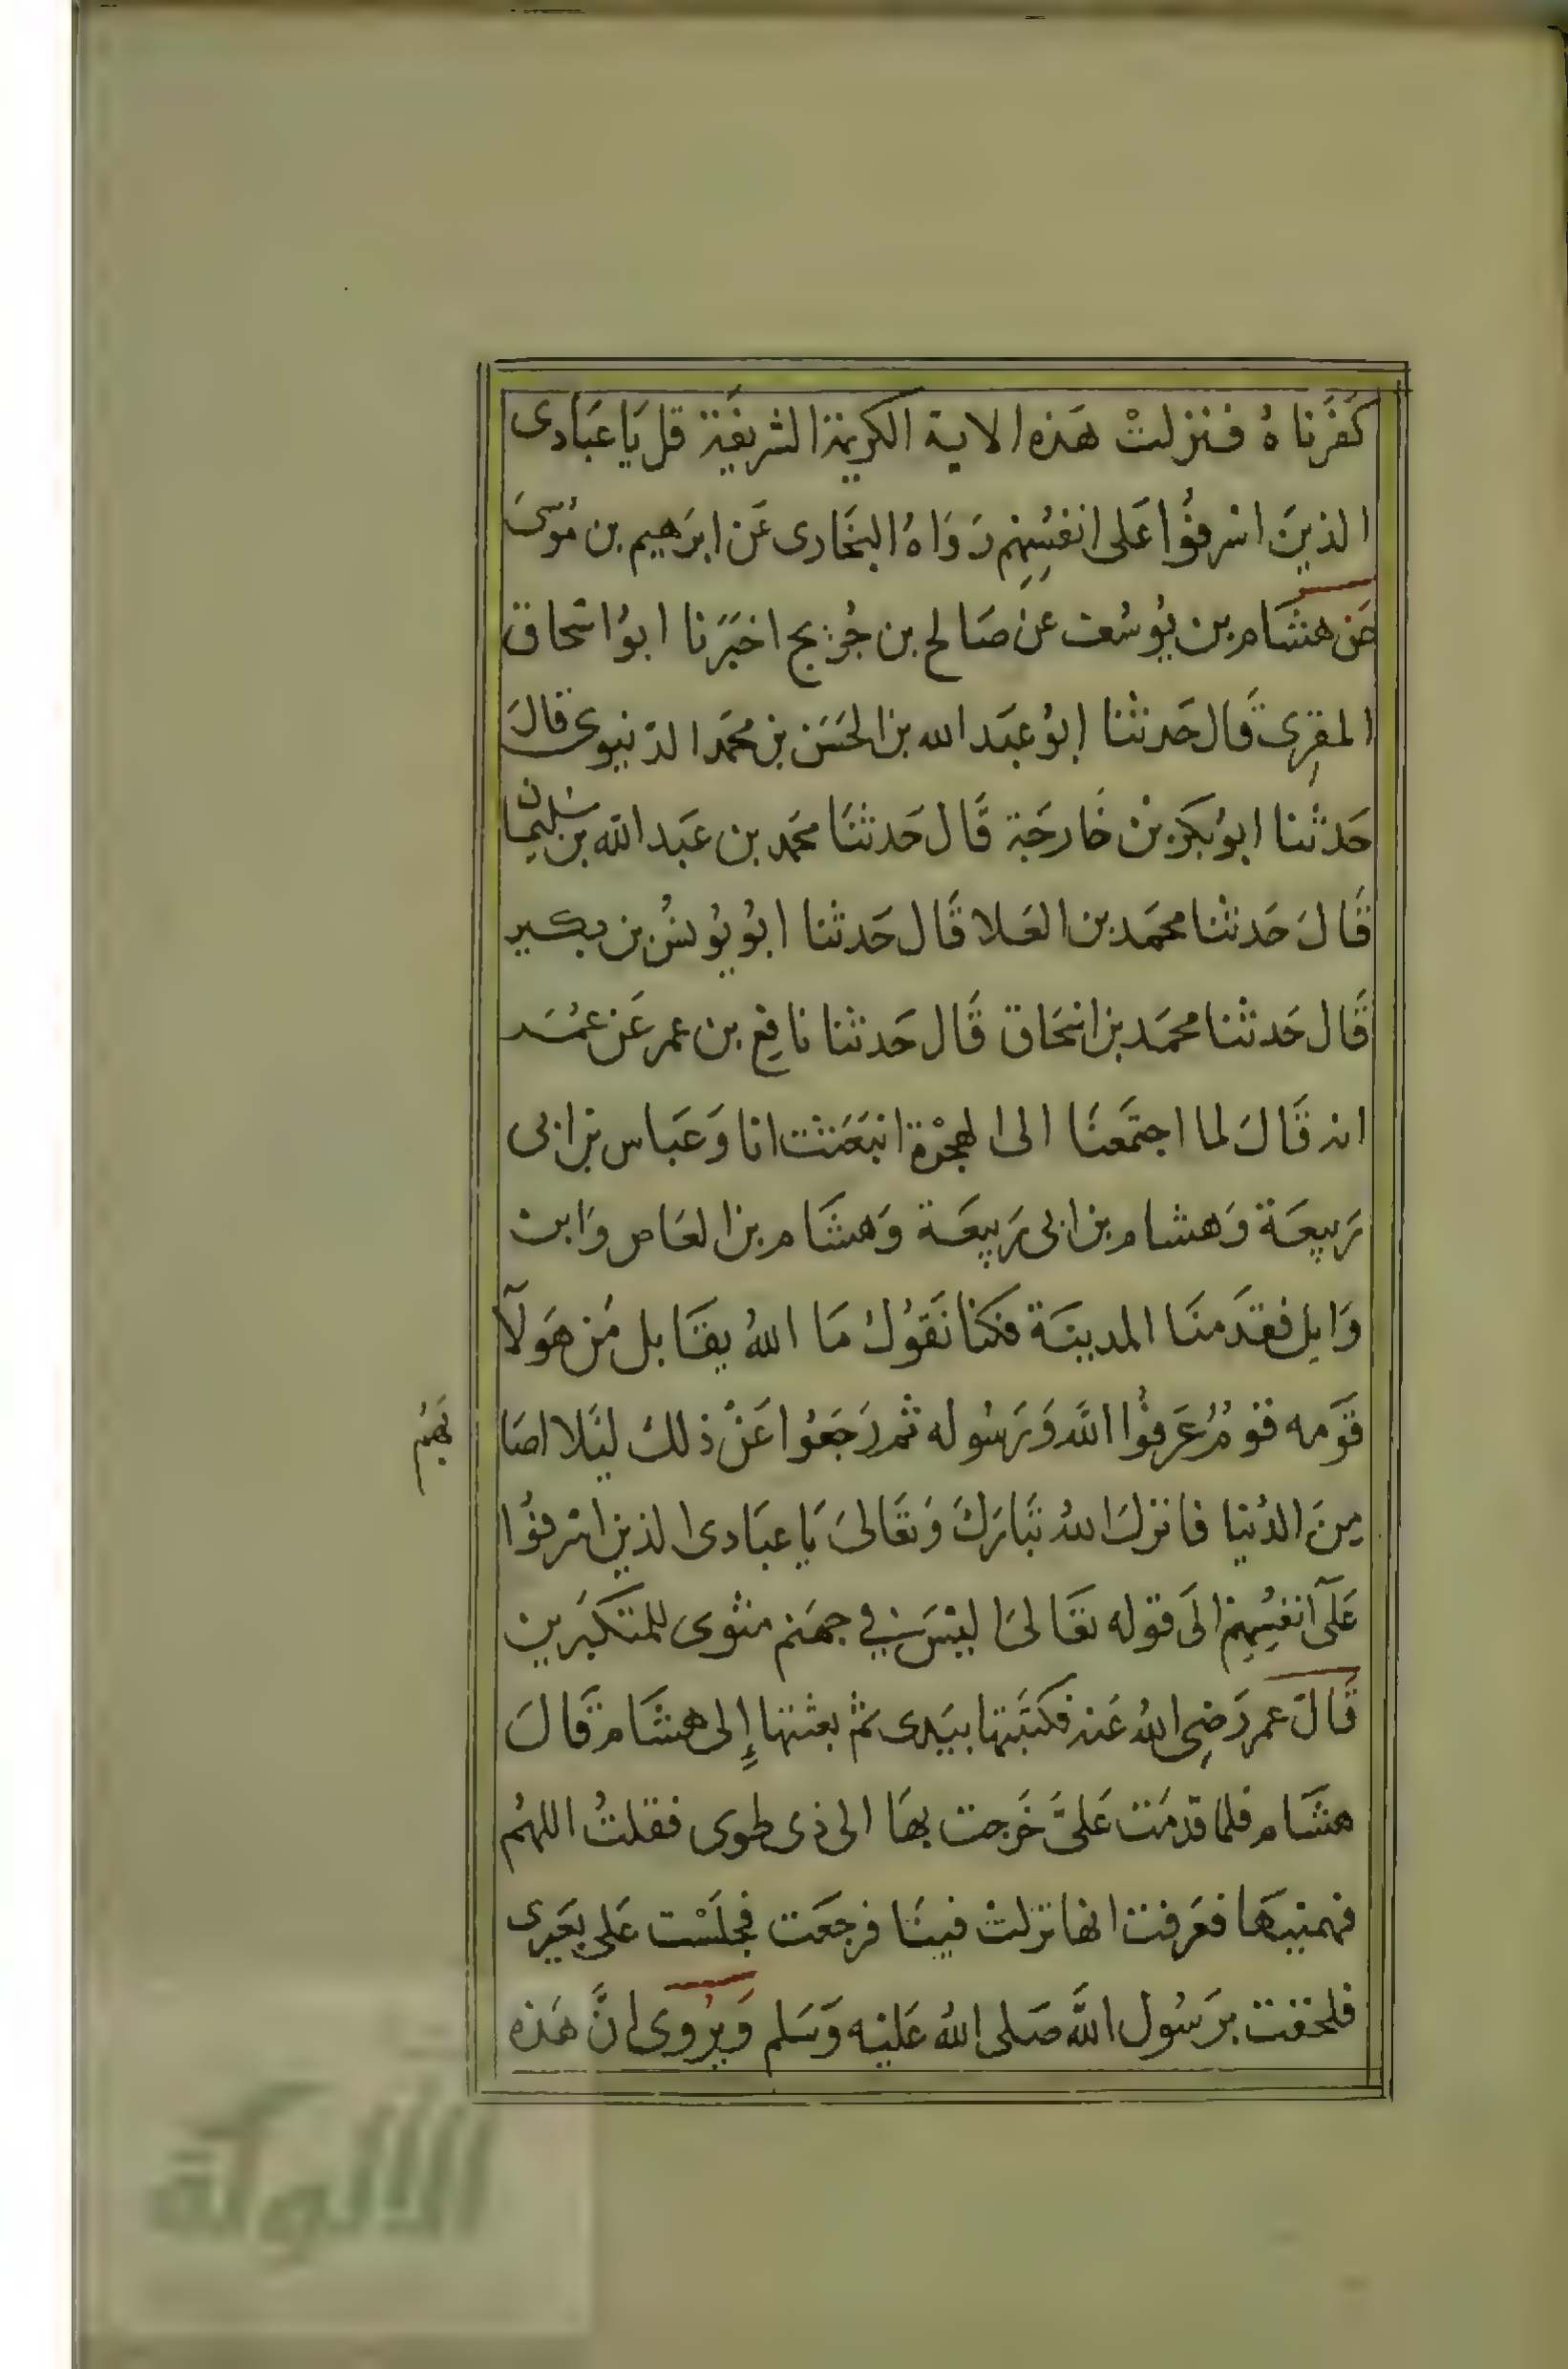 كَفَرَناهُ فنزلتْ هَذه الاية الكريمة الشريفَة قل يَا عبَادى
الذينَ اسْرفُوا عَلى انفسِهِم رَوَاهُ البخَارى عَن ابرَهيم بن مُوسىَ
عَن هشَام بن يوُسُف عن صَالح بن جُريج اخبَرَنا ابوُ اسحَاق
المقرِى قَال حَدثنا ابوُ عبَد الله بن الحسَن بن محمَد الدّينوى قالَ
حَدثنا ابوُ بَكر بنْ خَارجَة قَال حَدثنَا محمد بن عَبد الله بن سليمان
قَالَ حَدثنا محمَد بن العَلا قَال حَدثنا ابوُ يوُنسُ بن بكير
قَال حَدثنا محمَد بن اسحَاق قَال حَدثنا نافِع بن عمر عَن عمَر
انه قَالَ لما اجتمَعنَا الى الهجْرة انبَعَثت انا وَعَباس بن ابى
رَبيعَة وَهشام بن ابى رَبيعَة وَهشَام بن العَاص وَابن
وَايل فقدَمنَا المدينَة فكنا نَقوُلُ مَا اللهُ يقَابل مَن هَولآ
قوَمه قوْمُ عَرفوُا اللَّه وَرَسُوله ثم رَجَعوُا عَنْ ذلك ليَلا اصَا
بَهُم
مِنَ الدُنيا فانزلَ اللهُ تبَارَكَ وَتعَالىَ يَا عبَادى الذين اسْرفُوا
عَلَى انفسُهِم الَى قوله تعَالىَ اليْسَ في جهَنم مثوى للمتكَبرين
قَالَ عمر رَضِى اللهُ عَنه فكتَبَتها بيَدى ثم بعثتها إِلى هشَام قَالَ
هشَام فلما قدمَت عَلىَّ خَرجت بهَا الى ذى طوى فقلتُ اللهُم
فهمنيهَا فعَرفت انها نزلتْ فينَا فرجعَت فجلَسْت عَلى بعَيرى
فلحقت برَسُول اللَّه صَلى اللهُ عَليه وَسَلم وَيرُوى انَّ هَذه
الألوكة